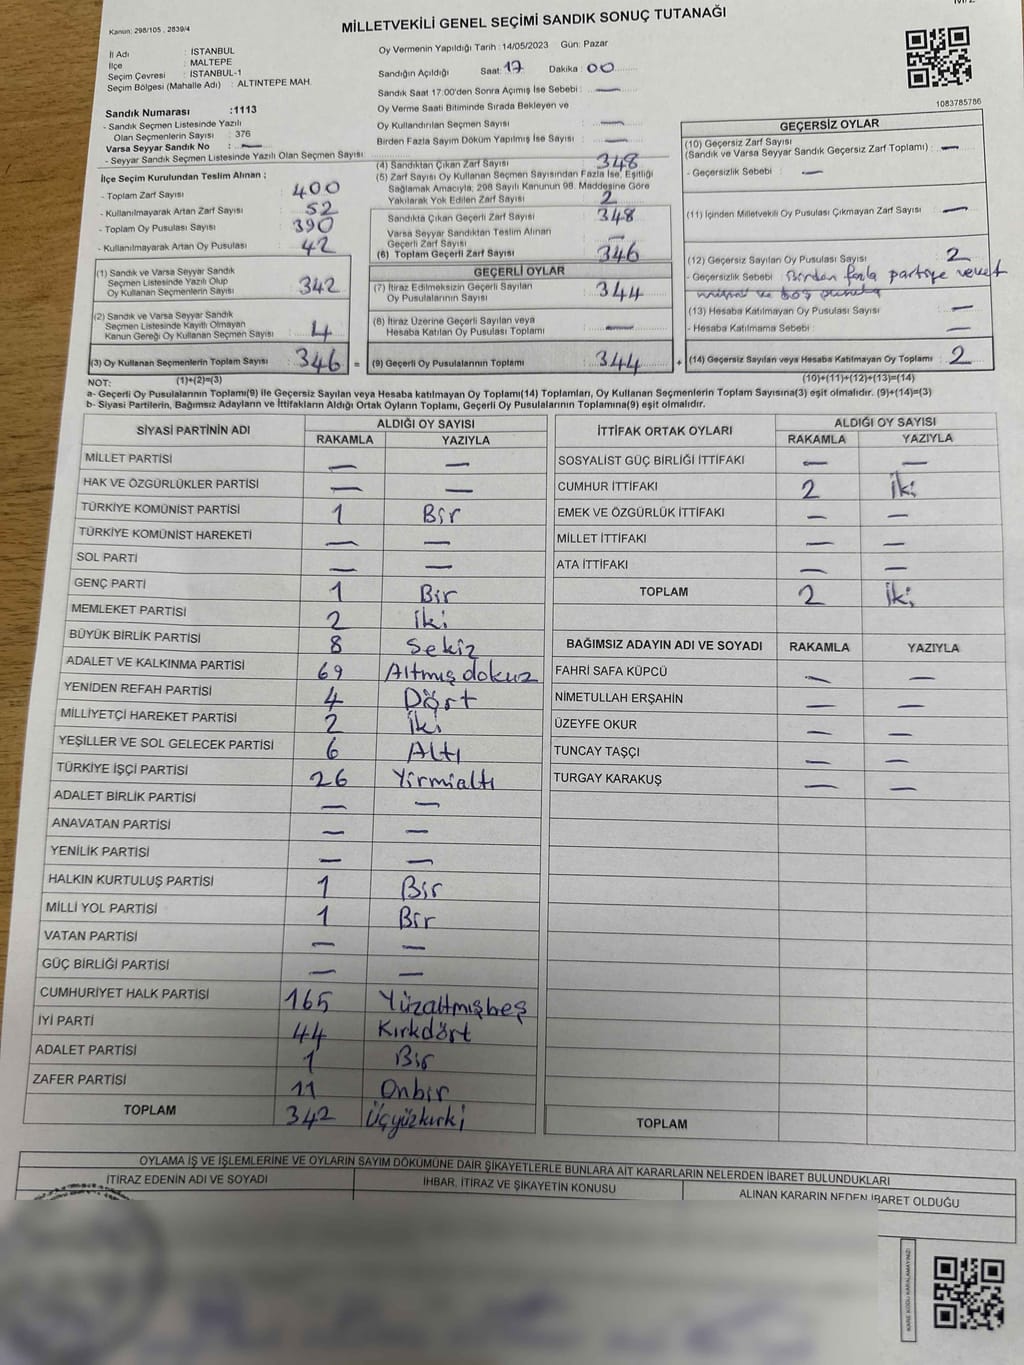 MİLLETVEKİLİ GENEL SEÇİMİ SANDIK SONUÇ TUTANAĞI
Kanun: 298/105 , 2839/4
İl Adı : İSTANBUL
İlçe : MALTEPE
Seçim Çevresi : İSTANBUL-1
Seçim Bölgesi (Mahalle Adı) : ALTINTEPE MAH.
Sandık Numarası :1113
- Sandık Seçmen Listesinde Yazılı
Olan Seçmenlerin Sayısı : 376
Varsa Seyyar Sandık No : —
- Seyyar Sandık Seçmen Listesinde Yazılı Olan Seçmen Sayısı
İlçe Seçim Kurulundan Teslim Alınan ;
- Toplam Zarf Sayısı : 400
- Kullanılmayarak Artan Zarf Sayısı : 52
- Toplam Oy Pusulası Sayısı : 390
- Kullanılmayarak Artan Oy Pusulası : 42
(1) Sandık ve Varsa Seyyar Sandık
Seçmen Listesinde Yazılı Olup
Oy Kullanan Seçmenlerin Sayısı : 342
(2) Sandık ve Varsa Seyyar Sandık
Seçmen Listesinde Kayıtlı Olmayan
Kanun Gereği Oy Kullanan Seçmen Sayısı : 4
(3) Oy Kullanan Seçmenlerin Toplam Sayısı : 346 =
Oy Vermenin Yapıldığı Tarih : 14/05/2023 Gün: Pazar
Sandığın Açıldığı Saat: 17 Dakika : 00
Sandık Saat 17:00'den Sonra Açımış İse Sebebi : —
Oy Verme Saati Bitiminde Sırada Bekleyen ve
Oy Kullandırılan Seçmen Sayısı : —
Birden Fazla Sayım Döküm Yapılmış İse Sayısı : —
(4) Sandıktan Çıkan Zarf Sayısı : 348
(5) Zarf Sayısı Oy Kullanan Seçmen Sayısından Fazla İse, Eşitliği
Sağlamak Amacıyla; 298 Sayılı Kanunun 98. Maddesine Göre
Yakılarak Yok Edilen Zarf Sayısı : 2
Sandıkta Çıkan Geçerli Zarf Sayısı : 348
Varsa Seyyar Sandıktan Teslim Alınan
Geçerli Zarf Sayısı : —
(6) Toplam Geçerli Zarf Sayısı : 346
GEÇERLİ OYLAR
(7) İtiraz Edilmeksizin Geçerli Sayılan
Oy Pusulalarının Sayısı : 344
(8) İtiraz Üzerine Geçerli Sayılan veya
Hesaba Katılan Oy Pusulası Toplamı : —
(9) Geçerli Oy Pusulalarının Toplamı : 344 +
1083785786
GEÇERSİZ OYLAR
(10) Geçersiz Zarf Sayısı
(Sandık ve Varsa Seyyar Sandık Geçersiz Zarf Toplamı) : —
- Geçersizlik Sebebi : —
(11) İçinden Milletvekili Oy Pusulası Çıkmayan Zarf Sayısı : —
(12) Geçersiz Sayılan Oy Pusulası Sayısı : 2
- Geçersizlik Sebebi : Birden fazla partiye
(13) Hesaba Katılmayan Oy Pusulası Sayısı : —
- Hesaba Katılmama Sebebi : —
(14) Geçersiz Sayılan veya Hesaba Katılmayan Oy Toplamı : 2
NOT: (1)+(2)=(3) (10)+(11)+(12)+(13)=(14)
a- Geçerli Oy Pusulalarının Toplamı(9) ile Geçersiz Sayılan veya Hesaba katılmayan Oy Toplamı(14) Toplamları, Oy Kullanan Seçmenlerin Toplam Sayısına(3) eşit olmalıdır. (9)+(14)=(3)
b- Siyasi Partilerin, Bağımsız Adayların ve İttifakların Aldığı Ortak Oyların Toplamı, Geçerli Oy Pusulalarının Toplamına(9) eşit olmalıdır.
SİYASİ PARTİNİN ADI ALDIĞI OY SAYISI
RAKAMLA YAZIYLA
MİLLET PARTİSİ — —
HAK VE ÖZGÜRLÜKLER PARTİSİ — —
TÜRKİYE KOMÜNİST PARTİSİ 1 Bir
TÜRKİYE KOMÜNİST HAREKETİ — —
SOL PARTİ — —
GENÇ PARTİ 1 Bir
MEMLEKET PARTİSİ 2 İki
BÜYÜK BİRLİK PARTİSİ 8 Sekiz
ADALET VE KALKINMA PARTİSİ 69 Altmışdokuz
YENİDEN REFAH PARTİSİ 4 Dört
MİLLİYETÇİ HAREKET PARTİSİ 2 İki
YEŞİLLER VE SOL GELECEK PARTİSİ 6 Altı
TÜRKİYE İŞÇİ PARTİSİ 26 Yirmialtı
ADALET BİRLİK PARTİSİ — —
ANAVATAN PARTİSİ — —
YENİLİK PARTİSİ — —
HALKIN KURTULUŞ PARTİSİ 1 Bir
MİLLİ YOL PARTİSİ 1 Bir
VATAN PARTİSİ — —
GÜÇ BİRLİĞİ PARTİSİ — —
CUMHURİYET HALK PARTİSİ 165 Yüzaltmışbeş
İYİ PARTİ 44 Kırkdört
ADALET PARTİSİ 1 Bir
ZAFER PARTİSİ 11 Onbir
TOPLAM 342 Üçyüzkırki
İTTİFAK ORTAK OYLARI ALDIĞI OY SAYISI
RAKAMLA YAZIYLA
SOSYALİST GÜÇ BİRLİĞİ İTTİFAKI — —
CUMHUR İTTİFAKI 2 İki
EMEK VE ÖZGÜRLÜK İTTİFAKI — —
MİLLET İTTİFAKI — —
ATA İTTİFAKI — —
TOPLAM 2 İki
BAĞIMSIZ ADAYIN ADI VE SOYADI RAKAMLA YAZIYLA
FAHRİ SAFA KÜPCÜ — —
NİMETULLAH ERŞAHİN — —
ÜZEYFE OKUR — —
TUNCAY TAŞÇI — —
TURGAY KARAKUŞ — —
TOPLAM
OYLAMA İŞ VE İŞLEMLERİNE VE OYLARIN SAYIM DÖKÜMÜNE DAİR ŞİKAYETLERLE BUNLARA AİT KARARLARIN NELERDEN İBARET BULUNDUKLARI
İTİRAZ EDENİN ADI VE SOYADI İHBAR, İTİRAZ VE ŞİKAYETİN KONUSU ALINAN KARARIN NEDEN İBARET OLDUĞU
KARE KODU KARALAMAYINIZ!